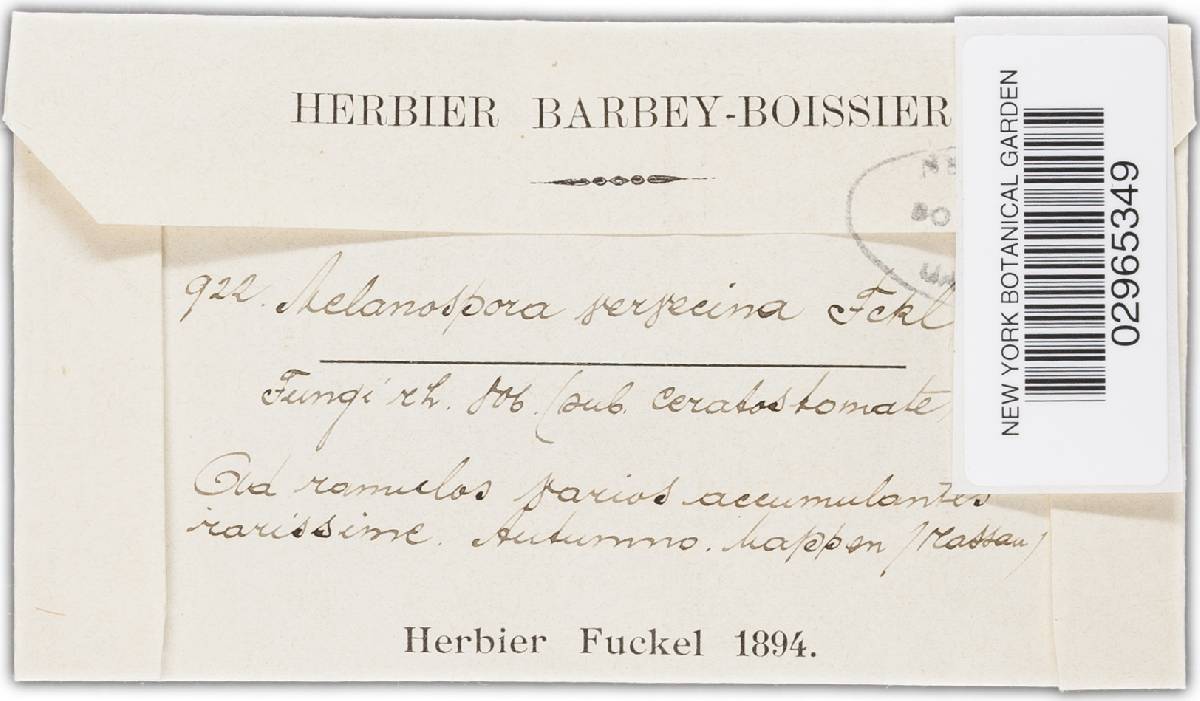 HERBIER BARBEY-BOISSIER
NE
BO
922. Melanospora vervecina Fckl
Fungi rh. (sub. Ceratostomate)
Ad ramulos varios accumulantes
rarissime. Autumno. Mappen (Nassau)
Herbier Fuckel 1894.
NEW YORK BOTANICAL GARDEN
02965349